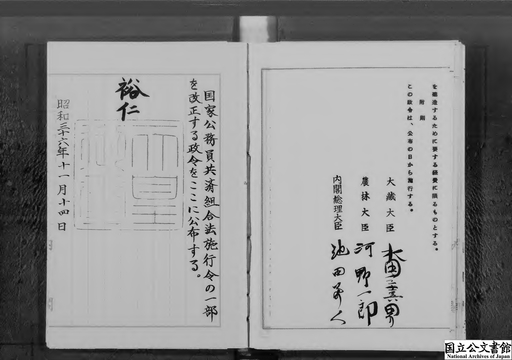 国家公務員共済組合法施行令の一部
を改正する政令をここに公布する。
裕仁
昭和三十六年十一月十四日
を築造するために要する経費に限るものとする。
附則
この政令は、公布の日から施行する。
大蔵大臣
農林大臣 河野一郎
内閣総理大臣 池田勇人
国立公文書館
National Archives of Japan